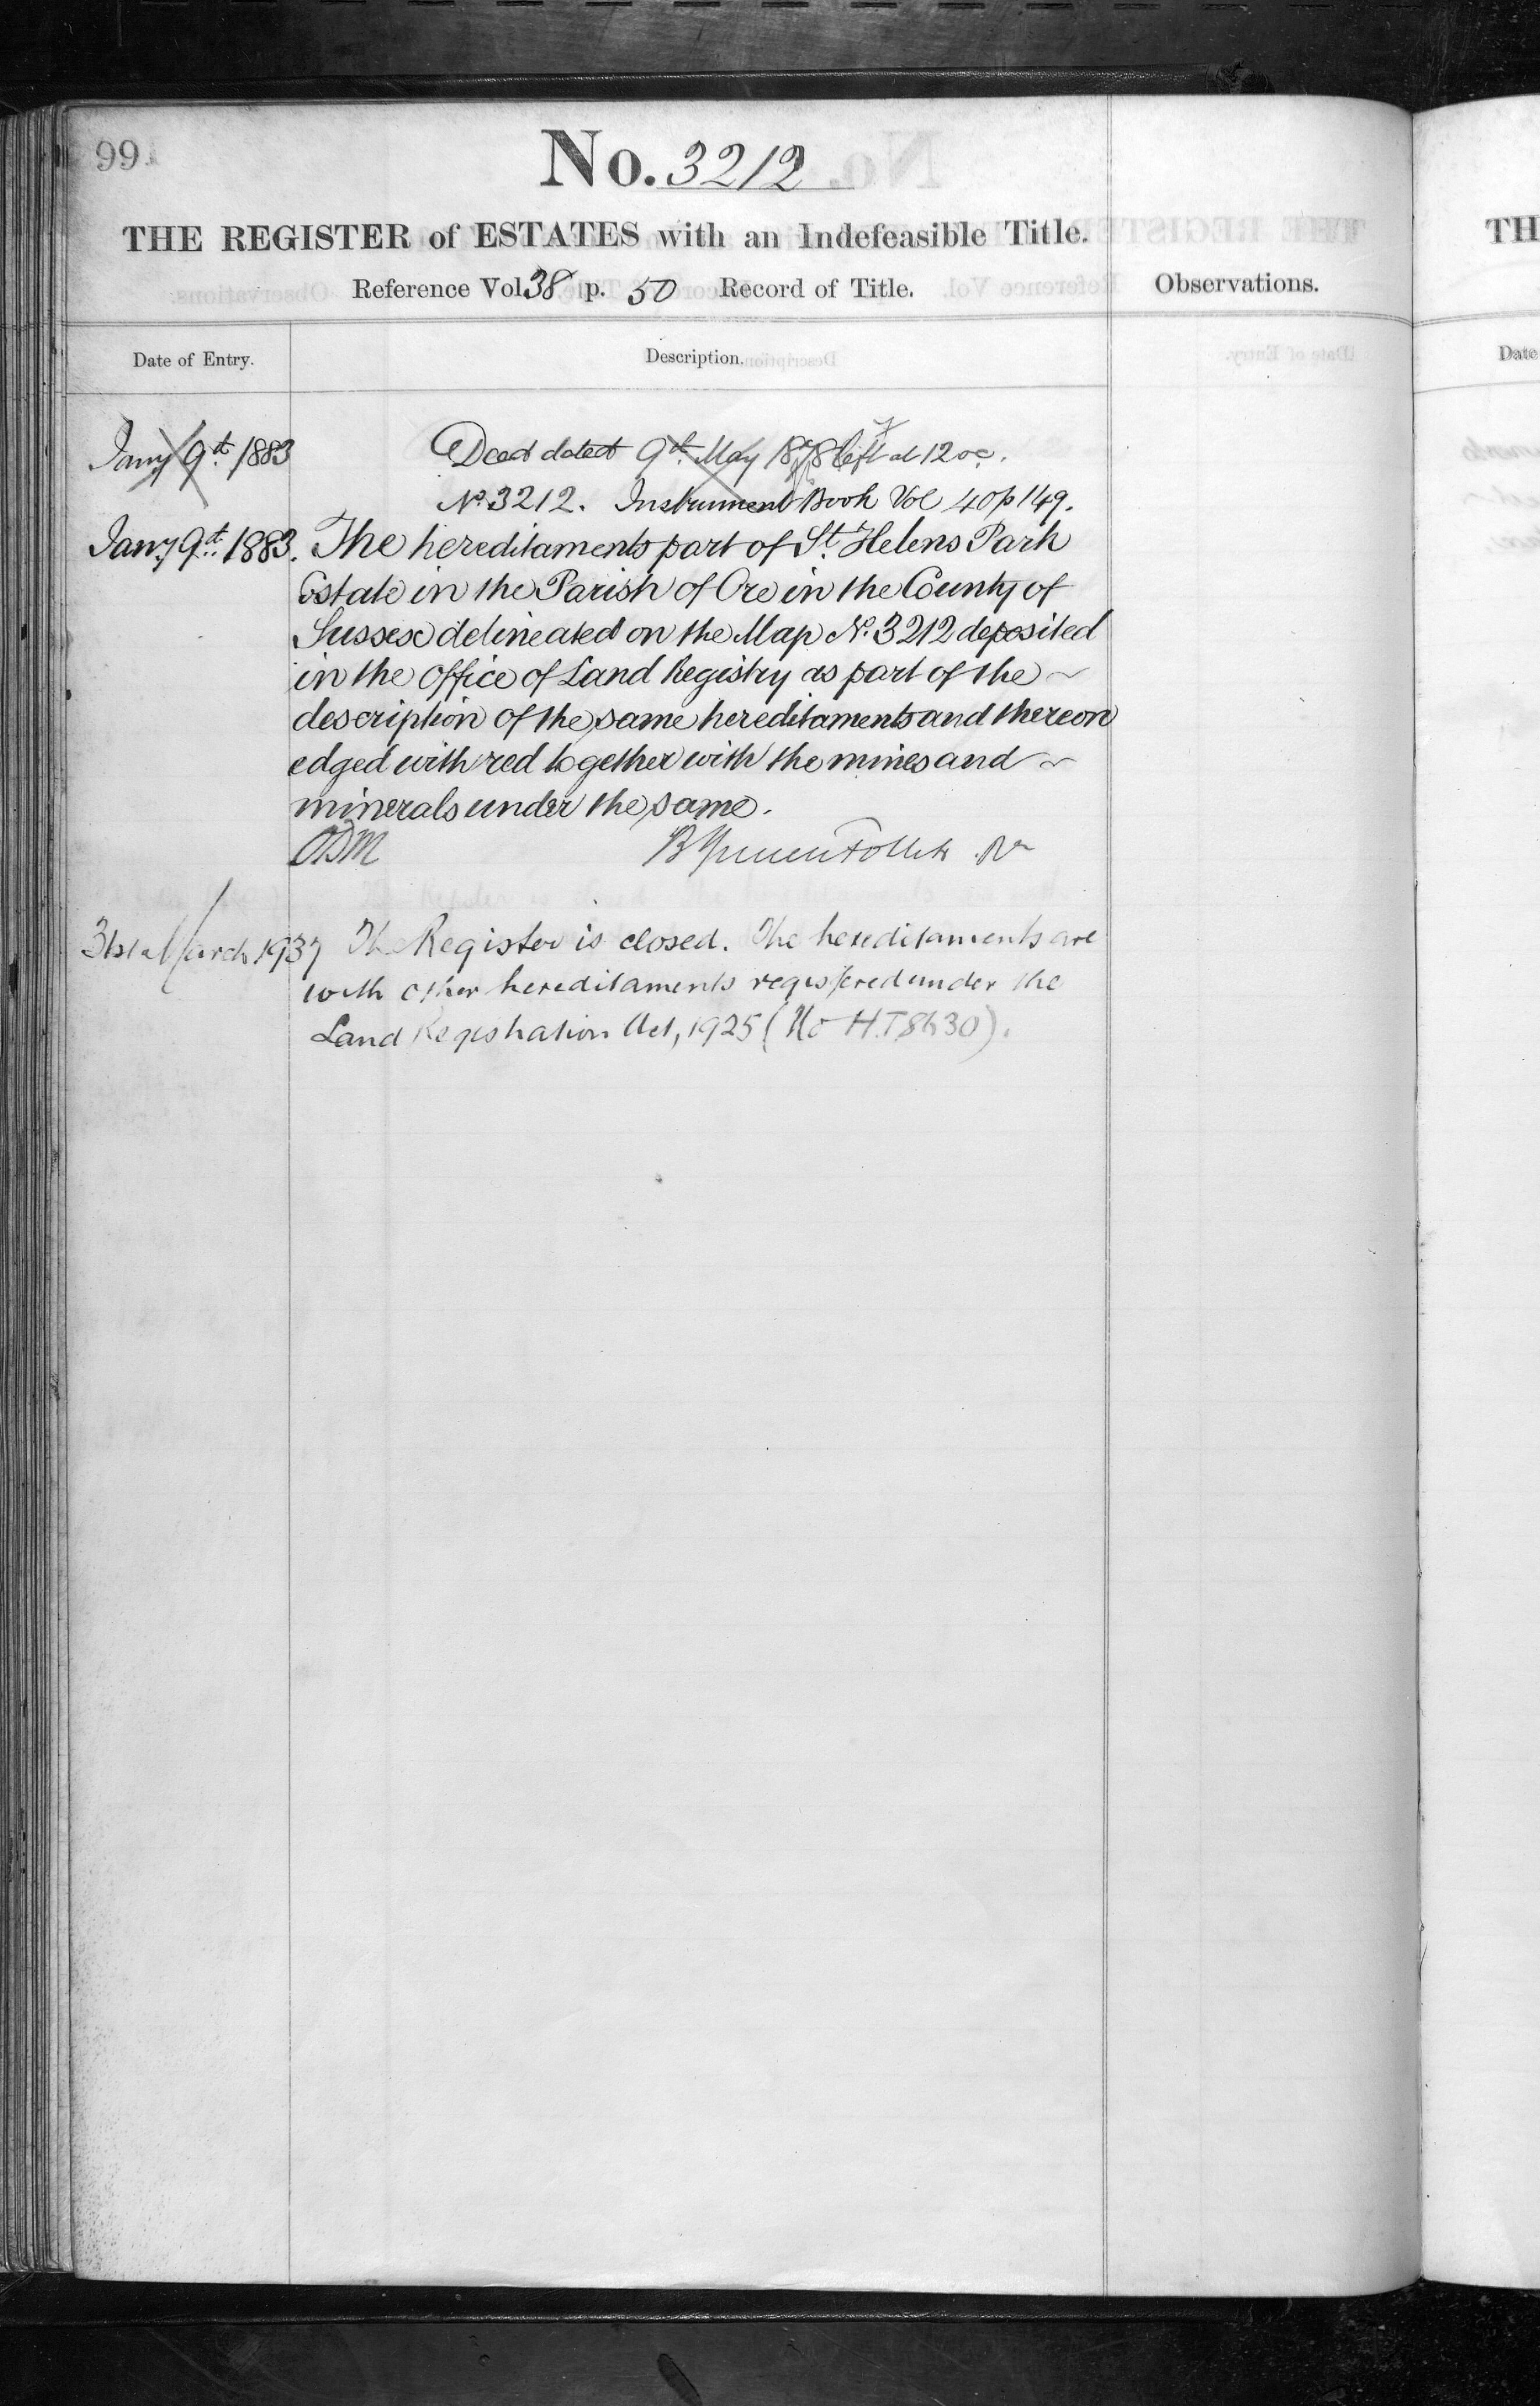 99
No. 3212
THE REGISTER of ESTATES with an Indefeasible Title.
Reference Vol. 38 p. 50 Record of Title.
Observations.
Date of Entry.
Description.
Jany 9th 1883
Deed dated 9th May 1878 left at 12 oc.
No. 3212. Instrument Book Vol 40 p 149.
Jany 9th 1883. The hereditaments part of St. Helens Park
Estate in the Parish of Ore in the County of
Sussex delineated on the Map No. 3212 deposited
in the office of Land Registry as part of the ~
description of the same hereditaments and thereon
edged with red together with the mines and ~
minerals under the same.
Follett
31st March 1937 The Register is closed. The hereditaments are
with other hereditaments registered under the
Land Registration Act, 1925 (No
TH
Date